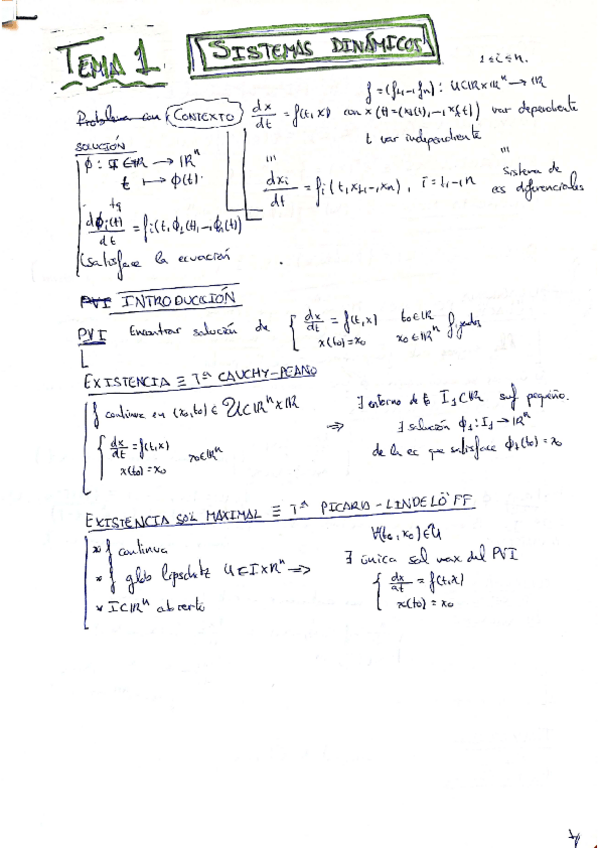 TEMA 1. SISTEMAS DINÁMICOS
1≤i≤n.
f=(f₁,…,fₙ): U⊂ℝ×ℝⁿ → ℝ
Problema con CONTEXTO dx/dt = f(t,x) con x(t)=(x₁(t),…,xₙ(t)) var dependiente
t var independiente
SOLUCIÓN
ϕ: I⊂ℝ → ℝⁿ
t ↦ ϕ(t).
dxᵢ/dt = fᵢ(t,x₁,…,xₙ), i=1,…,n
Sistema de
ecs diferenciales
tq
dϕᵢ(t)/dt = fᵢ(t,ϕ₁(t),…,ϕₙ(t))
(satisface la ecuación
PVI INTRODUCCIÓN
PVI Encontrar solución de { dx/dt = f(t,x) t₀∈ℝ
x(t₀)=x₀ x₀∈ℝⁿ fijados
EXISTENCIA ≡ Tª CAUCHY-PEANO
f continua en (x₀,t₀) ∈ U⊂ℝⁿ×ℝ
{ dx/dt = f(t,x)
x(t₀)=x₀ x₀∈ℝⁿ
⇒
∃ entorno de t₀ I₁⊂ℝ suf pequeño.
∃ solución ϕ₁: I₁→ℝⁿ
de la ec que satisface ϕ₁(t₀)=x₀
EXISTENCIA SOL MAXIMAL ≡ Tª PICARD-LINDELÖFF
* f continua
* f glob lipschitz U∈I×ℝⁿ ⇒
* I⊂ℝⁿ abierto
∀(t₀,x₀)∈U
∃ única sol max del PVI
{ dx/dt = f(t,x)
x(t₀)=x₀